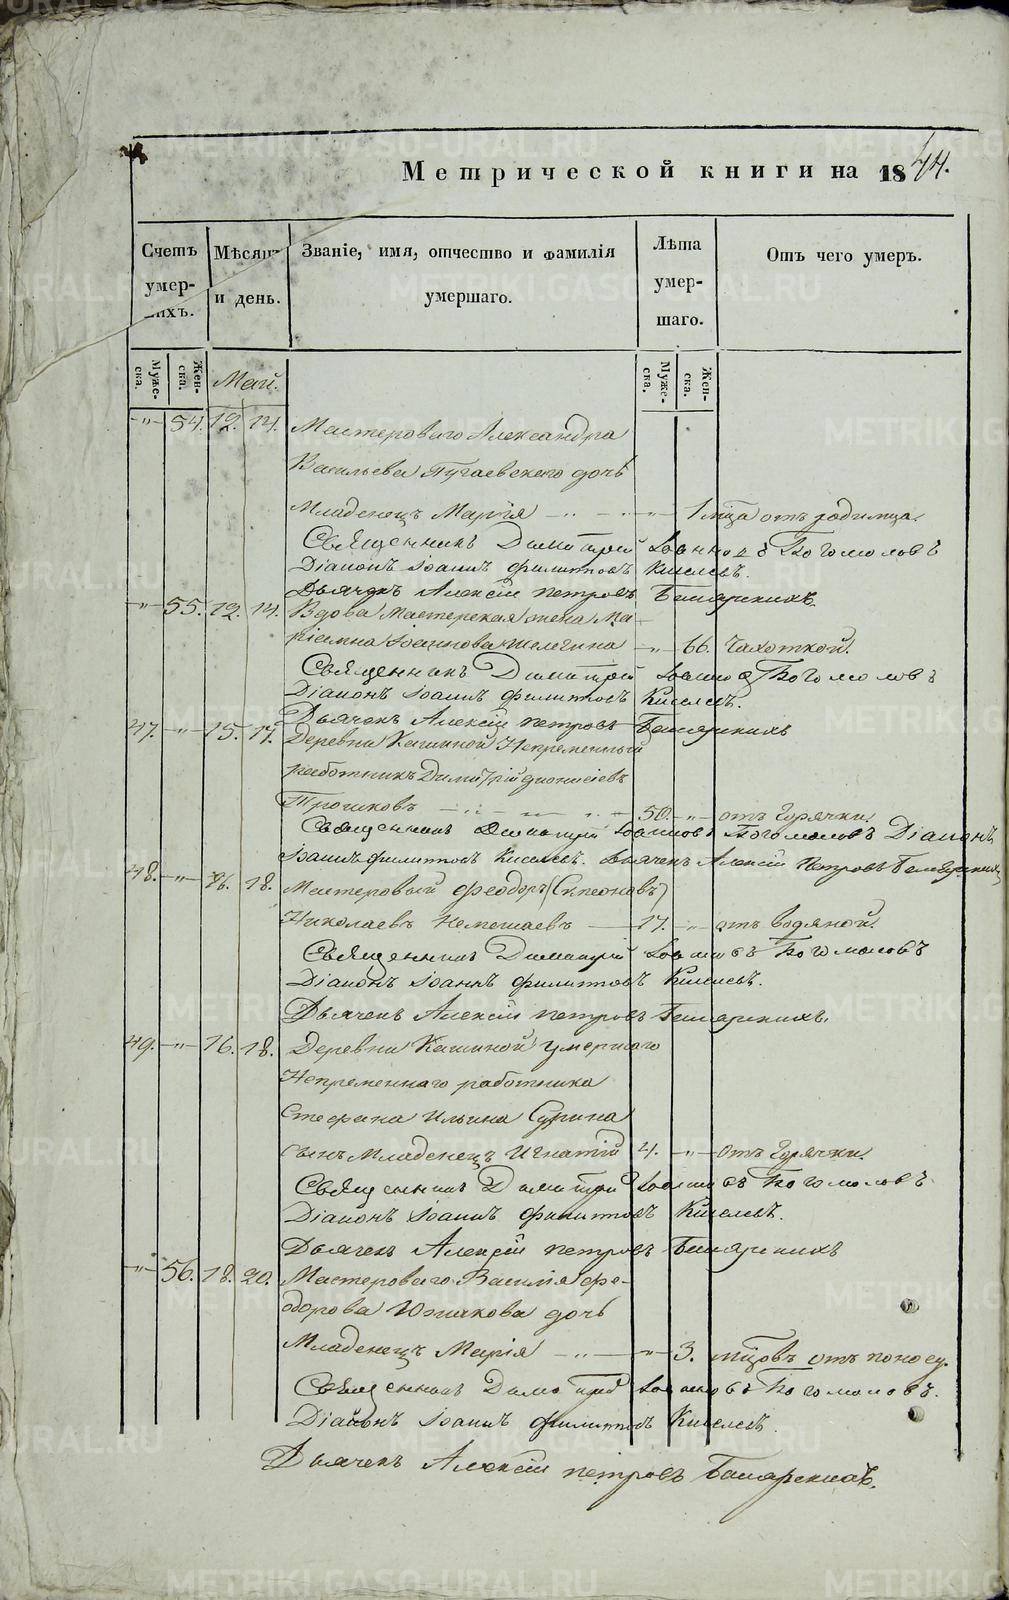 Метрической книги на 1844.
Счетъ умер- шихъ.
Мѣсяцъ и день.
Званіе, имя, отчество и фамилія умершаго.
Лѣта умер- шаго.
Отъ чего умеръ.
Муже- ска.
Жен- ска.
Май.
Муже- ска.
Жен- ска.
-"- 54. 12. 14. Мастероваго Александра
Васильева Пугаевскаго дочь
Младенецъ Марія -"- 1 мца отъ родимца.
Священникъ Димитрій Іоанновъ Богомоловъ
Діаконъ Іоаннъ Филиповъ Киселевъ.
Дьячекъ Алексій Петровъ
-"- 55. 12. 14. Вдова Мастерская жена Ма-
ріамна Іоаннова -"- 66. Чахоткой.
Священникъ Димитрій Іоанновъ Богомоловъ
Діаконъ Іоаннъ Филиповъ Киселевъ.
Дьячекъ Алексій Петровъ
47. -"- 15. 17. Деревни Кашиной Непременный
работникъ Димитрій Діонисіевъ
Трошковъ 50. -"- отъ Горячки.
Священникъ Димитрій Іоанновъ Богомоловъ Діаконъ
Іоаннъ Филиповъ Киселевъ. Дьячекъ Алексій Петровъ
48. -"- 16. 18. Мастеровый Феодоръ
Николаевъ Немешаевъ 17. -"- отъ водяной.
Священникъ Димитрій Іоанновъ Богомоловъ
Діаконъ Іоаннъ Филиповъ Киселевъ.
Дьячекъ Алексій Петровъ
49. -"- 16. 18. Деревни Кашиной умершаго
Непременнаго работника
Стефана Ильина Сурина
сынъ Младенецъ Игнатій 4. -"- отъ Горячки.
Священникъ Димитрій Іоанновъ Богомоловъ
Діаконъ Іоаннъ Филиповъ Киселевъ.
Дьячекъ Алексій Петровъ
-"- 56. 18. 20. Мастероваго Василія Фе-
одорова Южакова дочь
Младенецъ Марія -"- 3. мцовъ отъ поносу.
Священникъ Димитрій Іоанновъ Богомоловъ.
Діаконъ Іоаннъ Филиповъ Киселевъ.
Дьячекъ Алексій Петровъ
METRIKI.GASO-URAL.RU